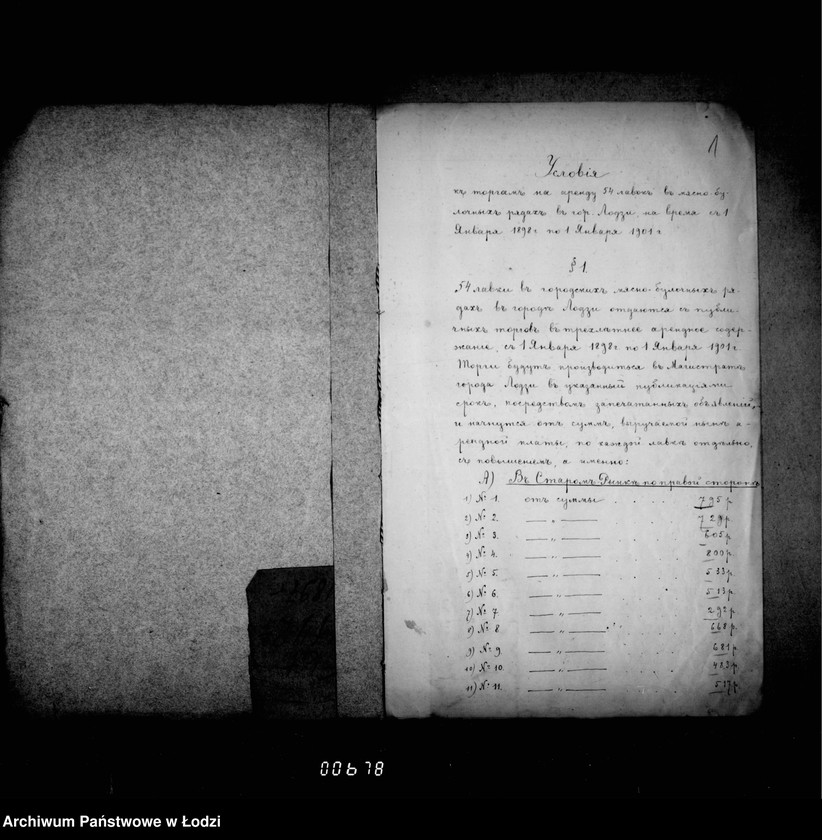 1
Условія
къ торгамъ на аренду 54 лавокъ въ мясно-бу-
лочныхъ рядахъ въ гор. Лодзи, на время съ 1
Января 1898 г. по 1 Января 1901 г.
§ 1.
54 лавки въ городскихъ мясно-булочныхъ ря-
дахъ въ городѣ Лодзи отдаются съ публи-
чныхъ торговъ въ трехлѣтнее арендное содер-
жаніе, съ 1 Января 1898 г. по 1 Января 1901 г.
Торги будутъ производиться въ Магистратѣ
города Лодзи въ указанный публикаціями
срокъ, посредствомъ запечатанныхъ объявленій,
и начнутся отъ суммъ, выручаемой нынѣ а-
рендной платы, по каждой лавкѣ отдѣльно,
съ повышеніемъ, а именно:
А) Въ Старомъ Рынкѣ по правой сторонѣ
1) № 1. отъ суммы . . . 795 р
2) № 2. — „ — . . . 729 р
3) № 3. — „ — . . . 605 р
4) № 4. — „ — . . . 800 р.
5) № 5. — „ — . . . 533 р.
6) № 6. — „ — . . . 513 р.
7) № 7. — „ — . . . 292 р
8) № 8. — „ — . . . 668 р.
9) № 9. — „ — . . . 681 р.
10) № 10. — „ — . . . 423 р.
11) № 11. — „ — . . . 517 р.
00678
Archiwum Państwowe w Łodzi